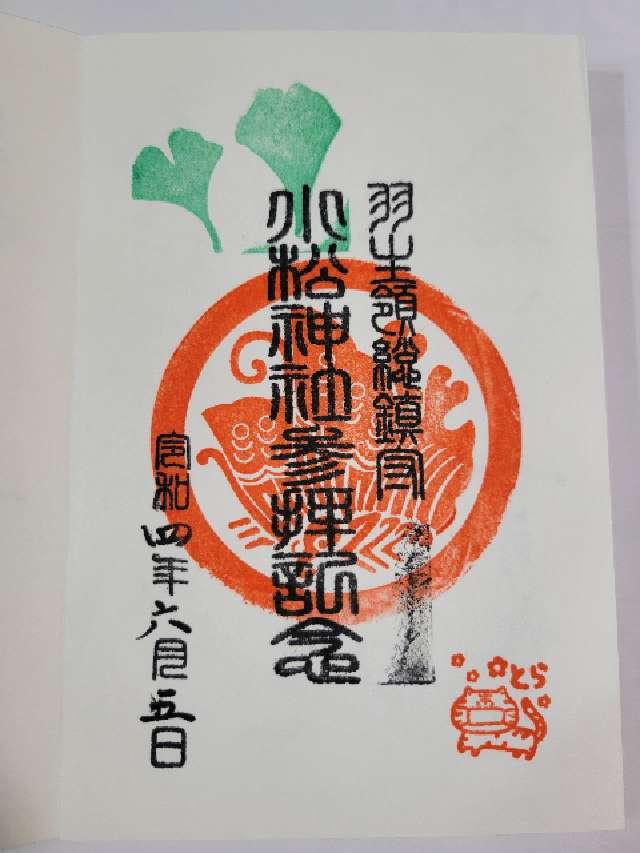 羽生領総鎮守
小松神社参拝記念
令和四年六月五日
とら